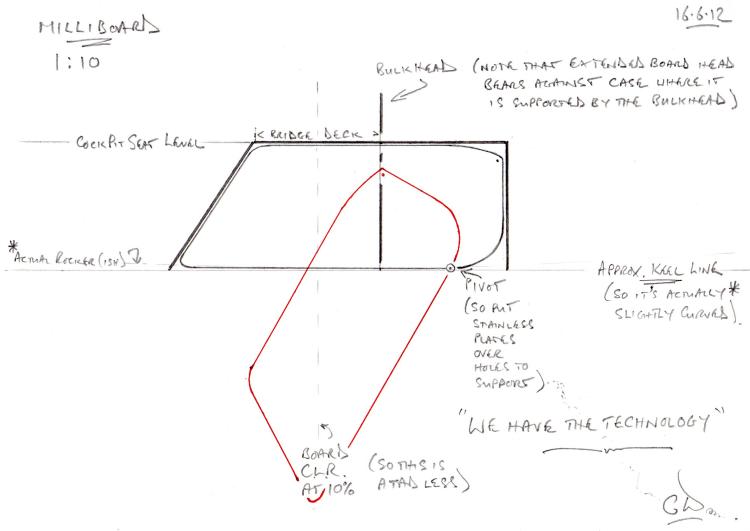 MILLIBOARD
1:10
16.6.12
BULKHEAD
(NOTE THAT EXTENDED BOARD HEAD
BEARS AGAINST CASE WHERE IT
IS SUPPORTED BY THE BULKHEAD)
COCKPIT SEAT LEVEL
< BRIDGE DECK >
* ACTUAL ROCKER (ISH)
APPROX. KEEL LINE
(SO IT'S ACTUALLY *
SLIGHTLY CURVED).
PIVOT
(SO PUT
STAINLESS
PLATES
OVER
HOLES TO
SUPPORT)
"WE HAVE THE TECHNOLOGY"
BOARD
C.L.R.
AT 10%
(SO THIS IS
A TAD LESS)